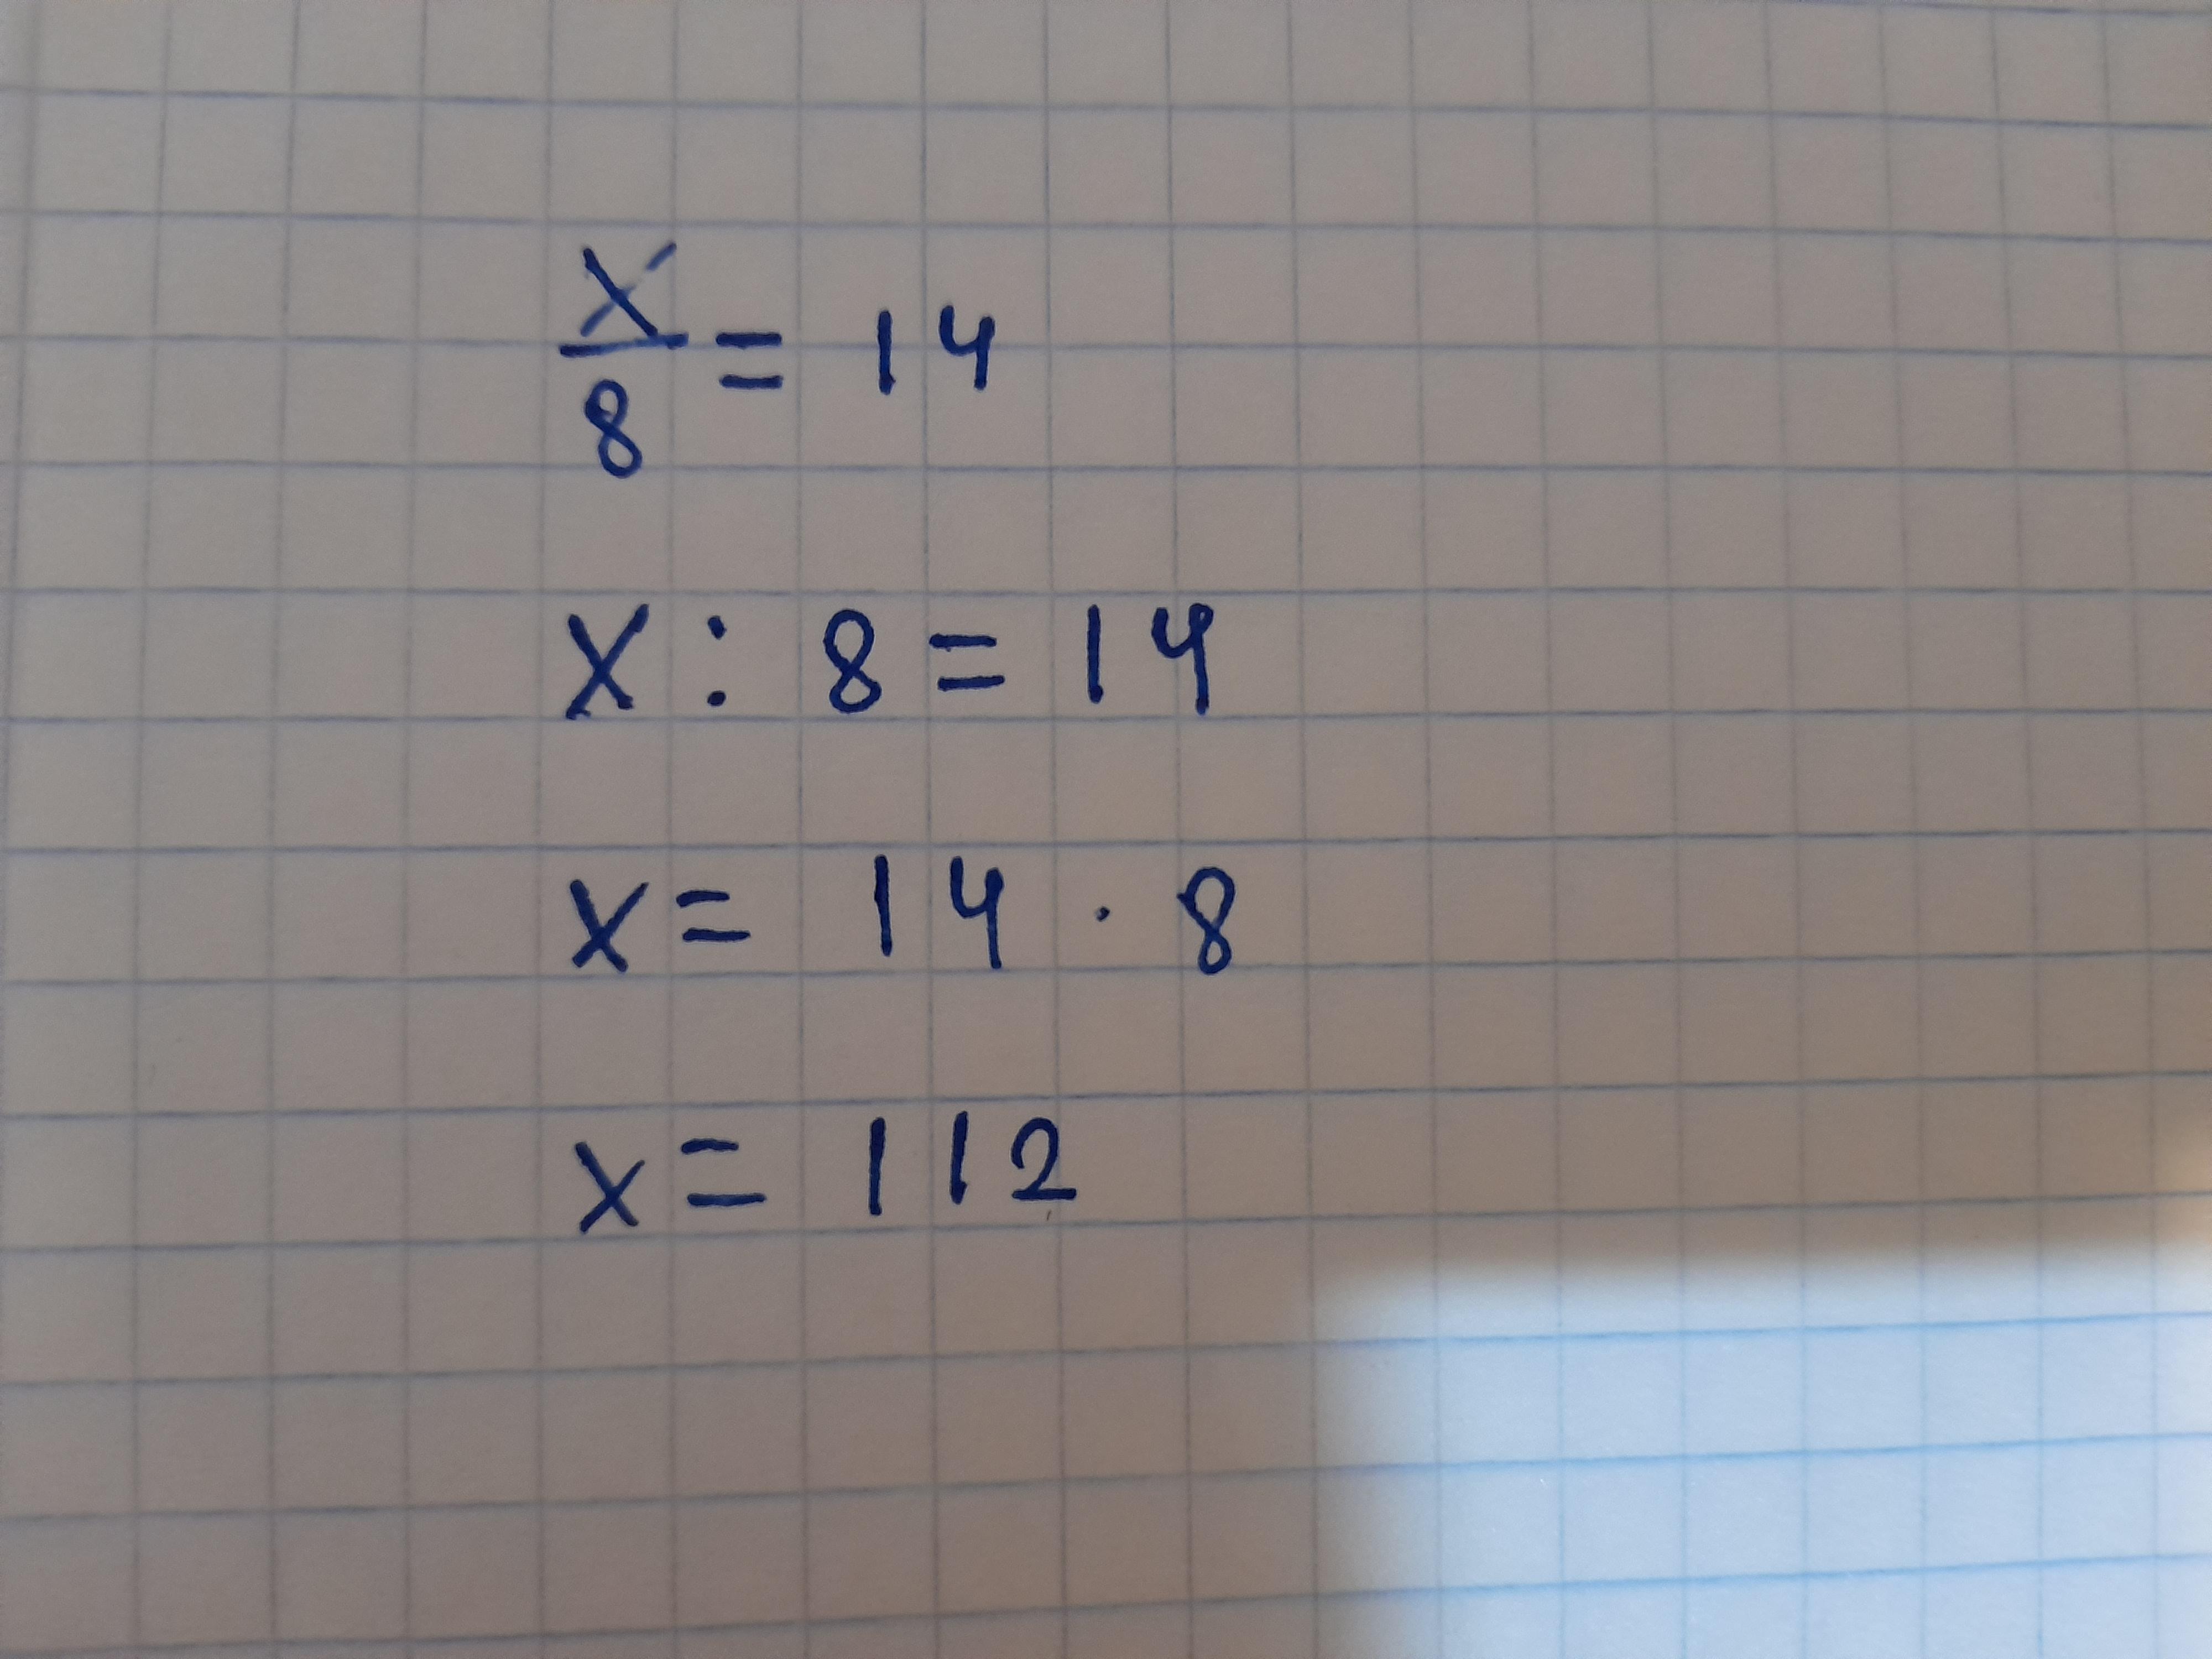 x/8 = 14
x : 8 = 14
x = 14 · 8
x = 112